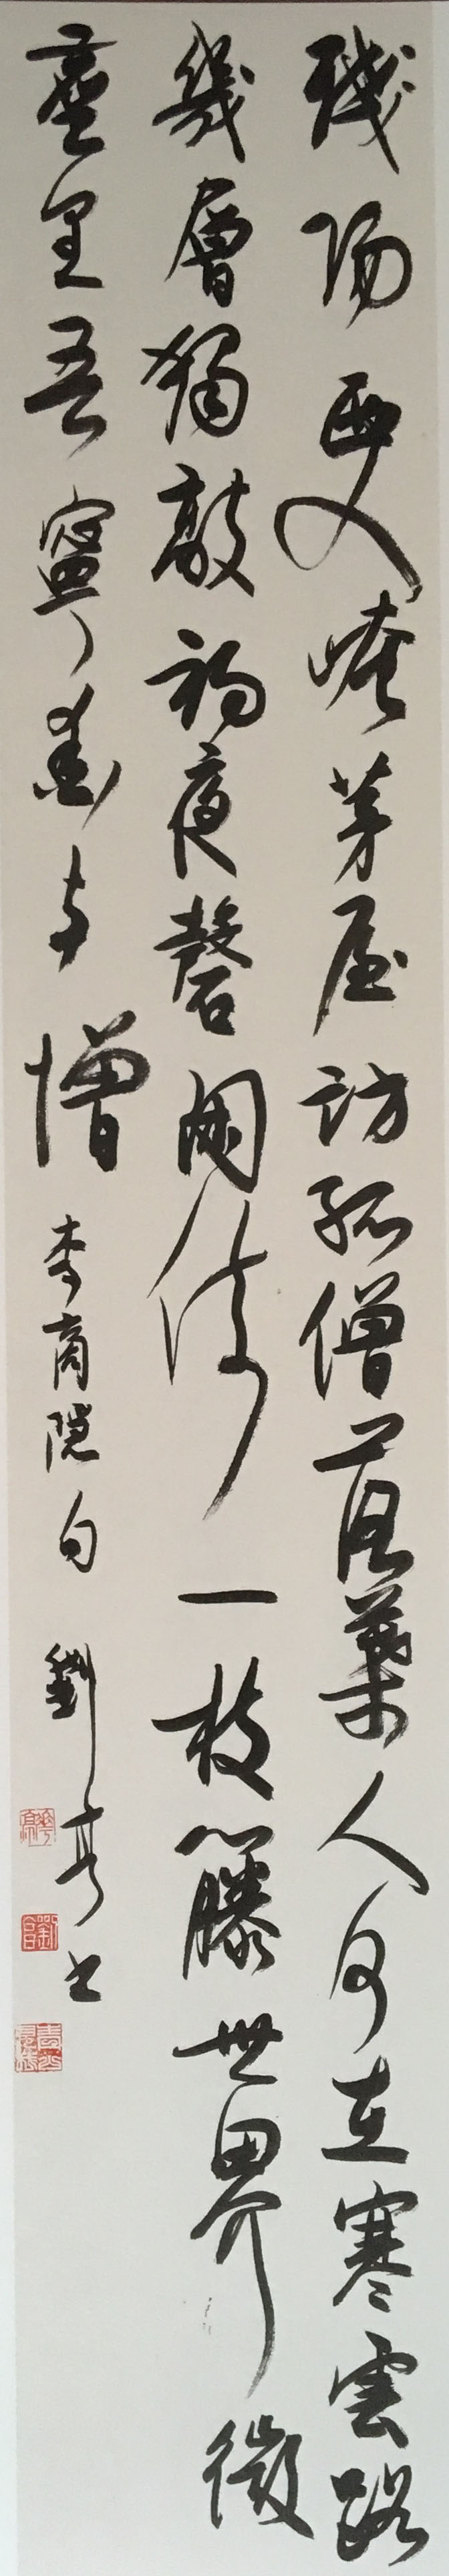 殘陽西入崦茅屋訪孤僧落葉人何在寒雲路
幾層獨敲初夜磬閑倚一枝籐世界微
塵里吾寧愛与憎 李商隱句 劉 書